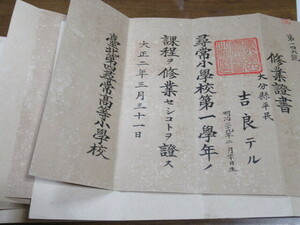 修業證書
大分縣平民
吉良テル
明治
尋常小學校第一學年ノ
課程ヲ修業セシコトヲ證ス
大正二年三月三十一日
臺北第四尋常高等小學校